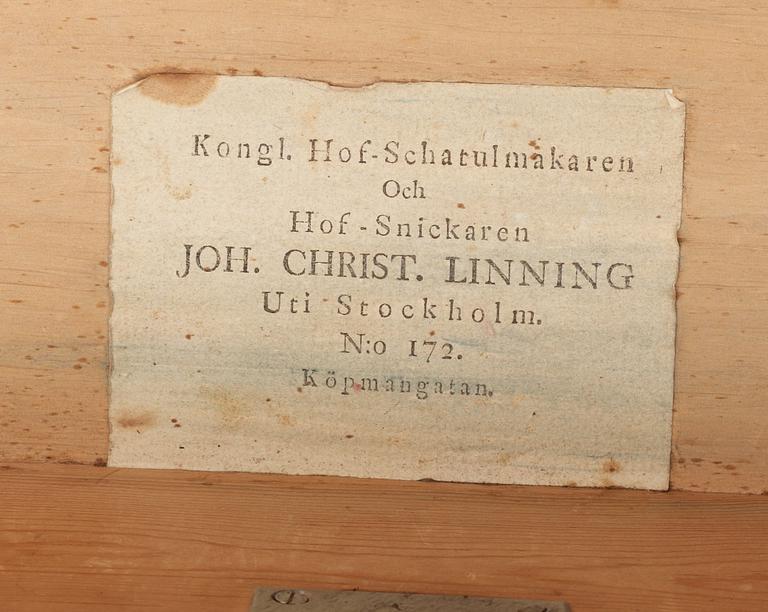 Kongl. Hof-Schatulmakaren
Och
Hof-Snickaren
JOH. CHRIST. LINNING
Uti Stockholm.
N:o 172.
Köpmangatan.